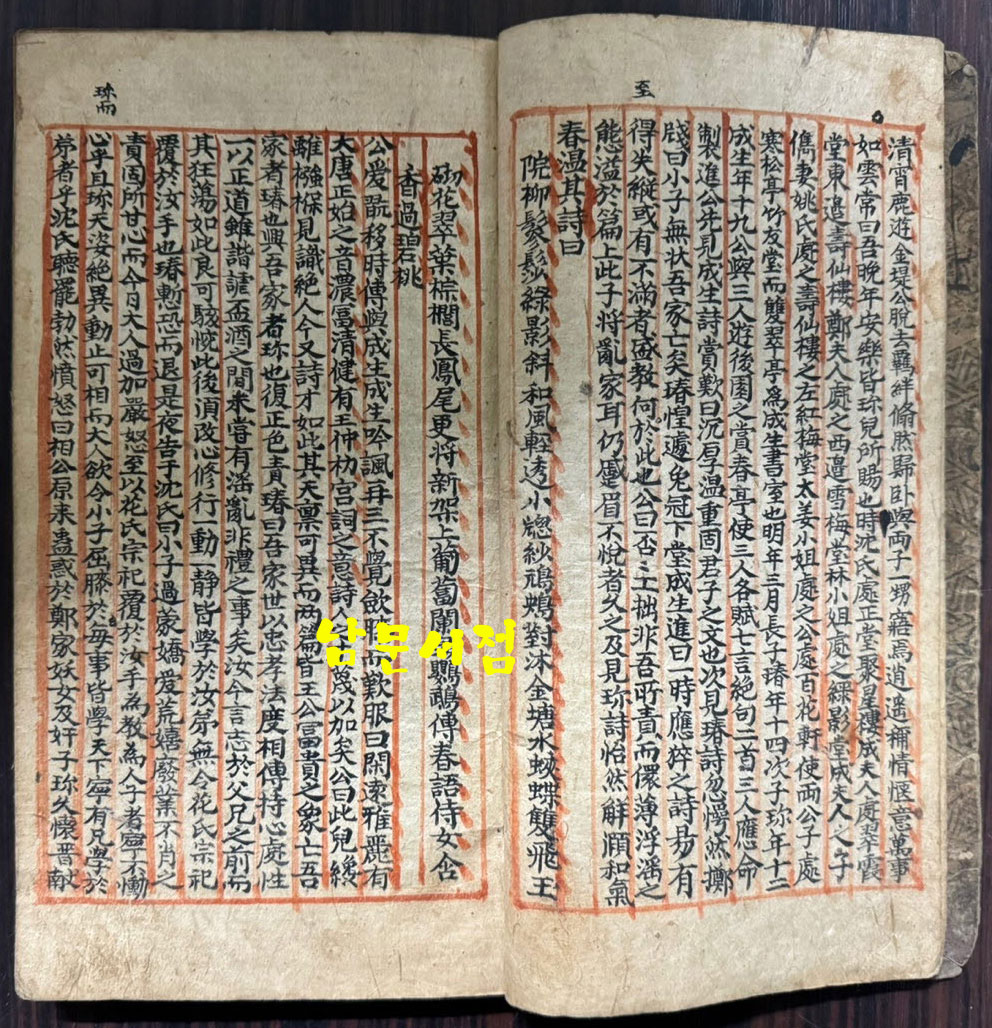 至
清宵鹿遊金堤公脫去羈絆翛然歸卧與兩子一甥寤焉逍遣稱情愜意萬事
如雲常曰吾晚年安樂皆珎兒所賜也時沈氏處正堂聚星樓成夫人處翠霞
堂東邉壽仙樓鄭夫人處之西邉雪梅堂林小姐處之綠影堂成夫人之子
儁妻姚氏處之壽仙樓之左紅梅堂太姜小姐處之公處百花軒使兩公子處
寒松亭竹友堂而雙翠亭爲成生書室也明年三月長子瑃年十四次子珎年十二
成生年十九公與三人遊後園之賞春亭使三人各賦七言絶句二首三人應命
製進公先見成生詩賞歎曰沉厚温重固君子之文也次見瑃詩忽愕然擲
牋曰小子無狀吾家亡矣瑃惶遽免冠下堂成生進曰一時應猝之詩易有
得失縱或有不滿者盛教何於此也公曰否〻拙非吾所責而儇薄浮滛之
態溢於篇上此子將亂家耳仍蹙眉不悅者久之及見珎詩怡然解頥和氣
春温其詩曰
院柳鬖鬖綠影斜和風輕透小牕紗對沐金塘水蛺蝶雙飛玉
珎而
砌花翠葉棕櫚長鳳尾更將新架上葡萄鸚鵡傳春語侍女含
香過碧桃
公爱翫移時傳與成生成生吟諷再三不覺歛而歎服曰閑澹雅麗有
大唐正始之音濃富清健有王仲初宮詞之意詩人蔑以加矣公曰此兒纔
離襁褓見識絕人今又詩才如此其天禀可異而兩篇皆王公富貴之象亡吾
家者瑃也興吾家者珎也復正色責瑃曰吾家世以忠孝法度相傳持心處性
一以正道雖諧謔盃酒之間未嘗有滛亂非禮之事矣汝今言志於父兄之前而
其狂蕩如此良可駭惋此後湏改心修行一動一靜皆學於汝弟無令花氏宗祀
覆於汝手也瑃慙恐而退是夜告于沈氏曰小子過蒙嬌愛荒嬉廢業不肖之
責固所甘心而今日大人過加嚴怒至以花氏宗祀覆於汝手為教為人子者寧不慟
心乎且珎天姿絕異動止可相而大人欲令小子屈膝於每事皆學天下寧有兄學於
弟者乎沈氏聽罷勃然憤怒曰相公原来蠱惑於鄭家妖女及奸子珎久懷晋献
남문서점